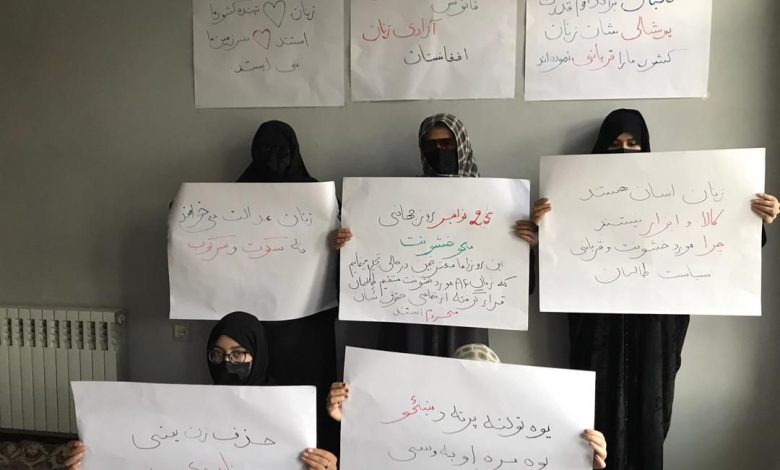 زنان تبنده کشور ما
استند سرزمین ما
می ایستد
فانوس
آزادی زنان
افغانستان
طالبان برای دوام قدرت
پوشالی شان زنان
کشور ما را قربانی نموده‌اند
زنان عدالت می‌خواهند
نه سکوت و سرکوب
25 نوامبر روز جهانی
محو خشونت
این روز را ما معترضین در حالی تجلیل می‌نماییم
که زنان AF مورد خشونت مستقیم طالبان
قرار گرفته از تمامی حقوق شان
محروم استند
زنان انسان هستند
کالا و ابزار نیستند
چرا مورد خشونت و قربانی
سیاست طالبان
حذف زن یعنی
یوه ټولنه پرته د ښځو
یوه مړه او بې وسی